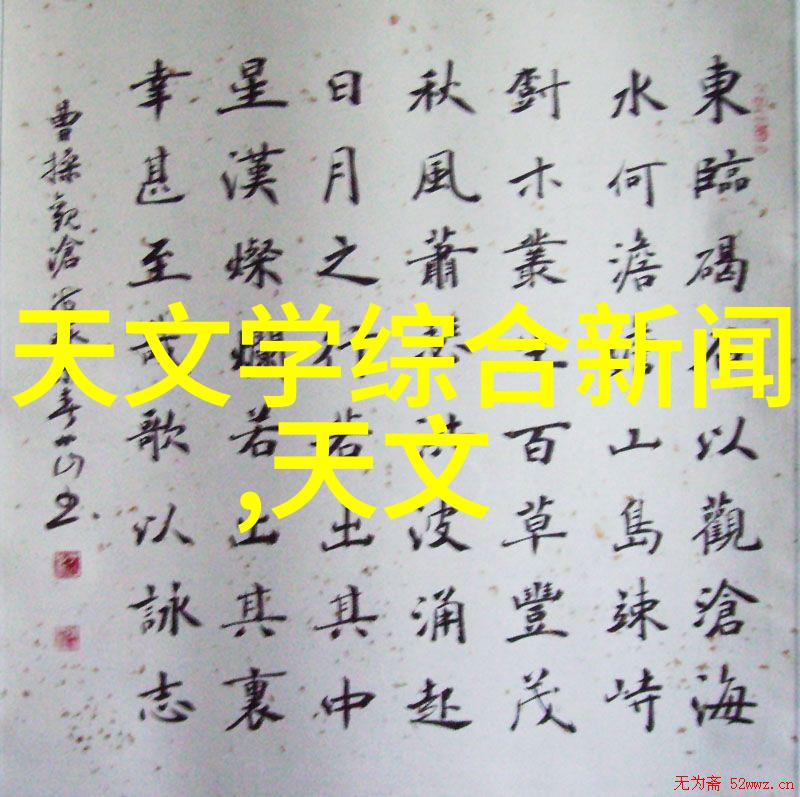 東臨碣石以觀滄海
水何澹澹山島竦峙
樹木叢生百草豐茂
秋風蕭瑟洪波涌起
日月之行若出其中
星漢燦爛若出其裏
幸甚至哉歌以詠志
曹操觀滄
天文学综合新闻
,天文
无为斋 52wwz.cn